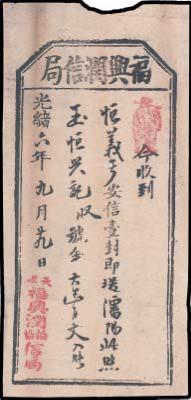 福興潤信局
今收到
恒義号安信壹封即送瀋陽此照
玉恒兴記收號金
文入賬
光緒六年九月廿九日
福興潤
信局